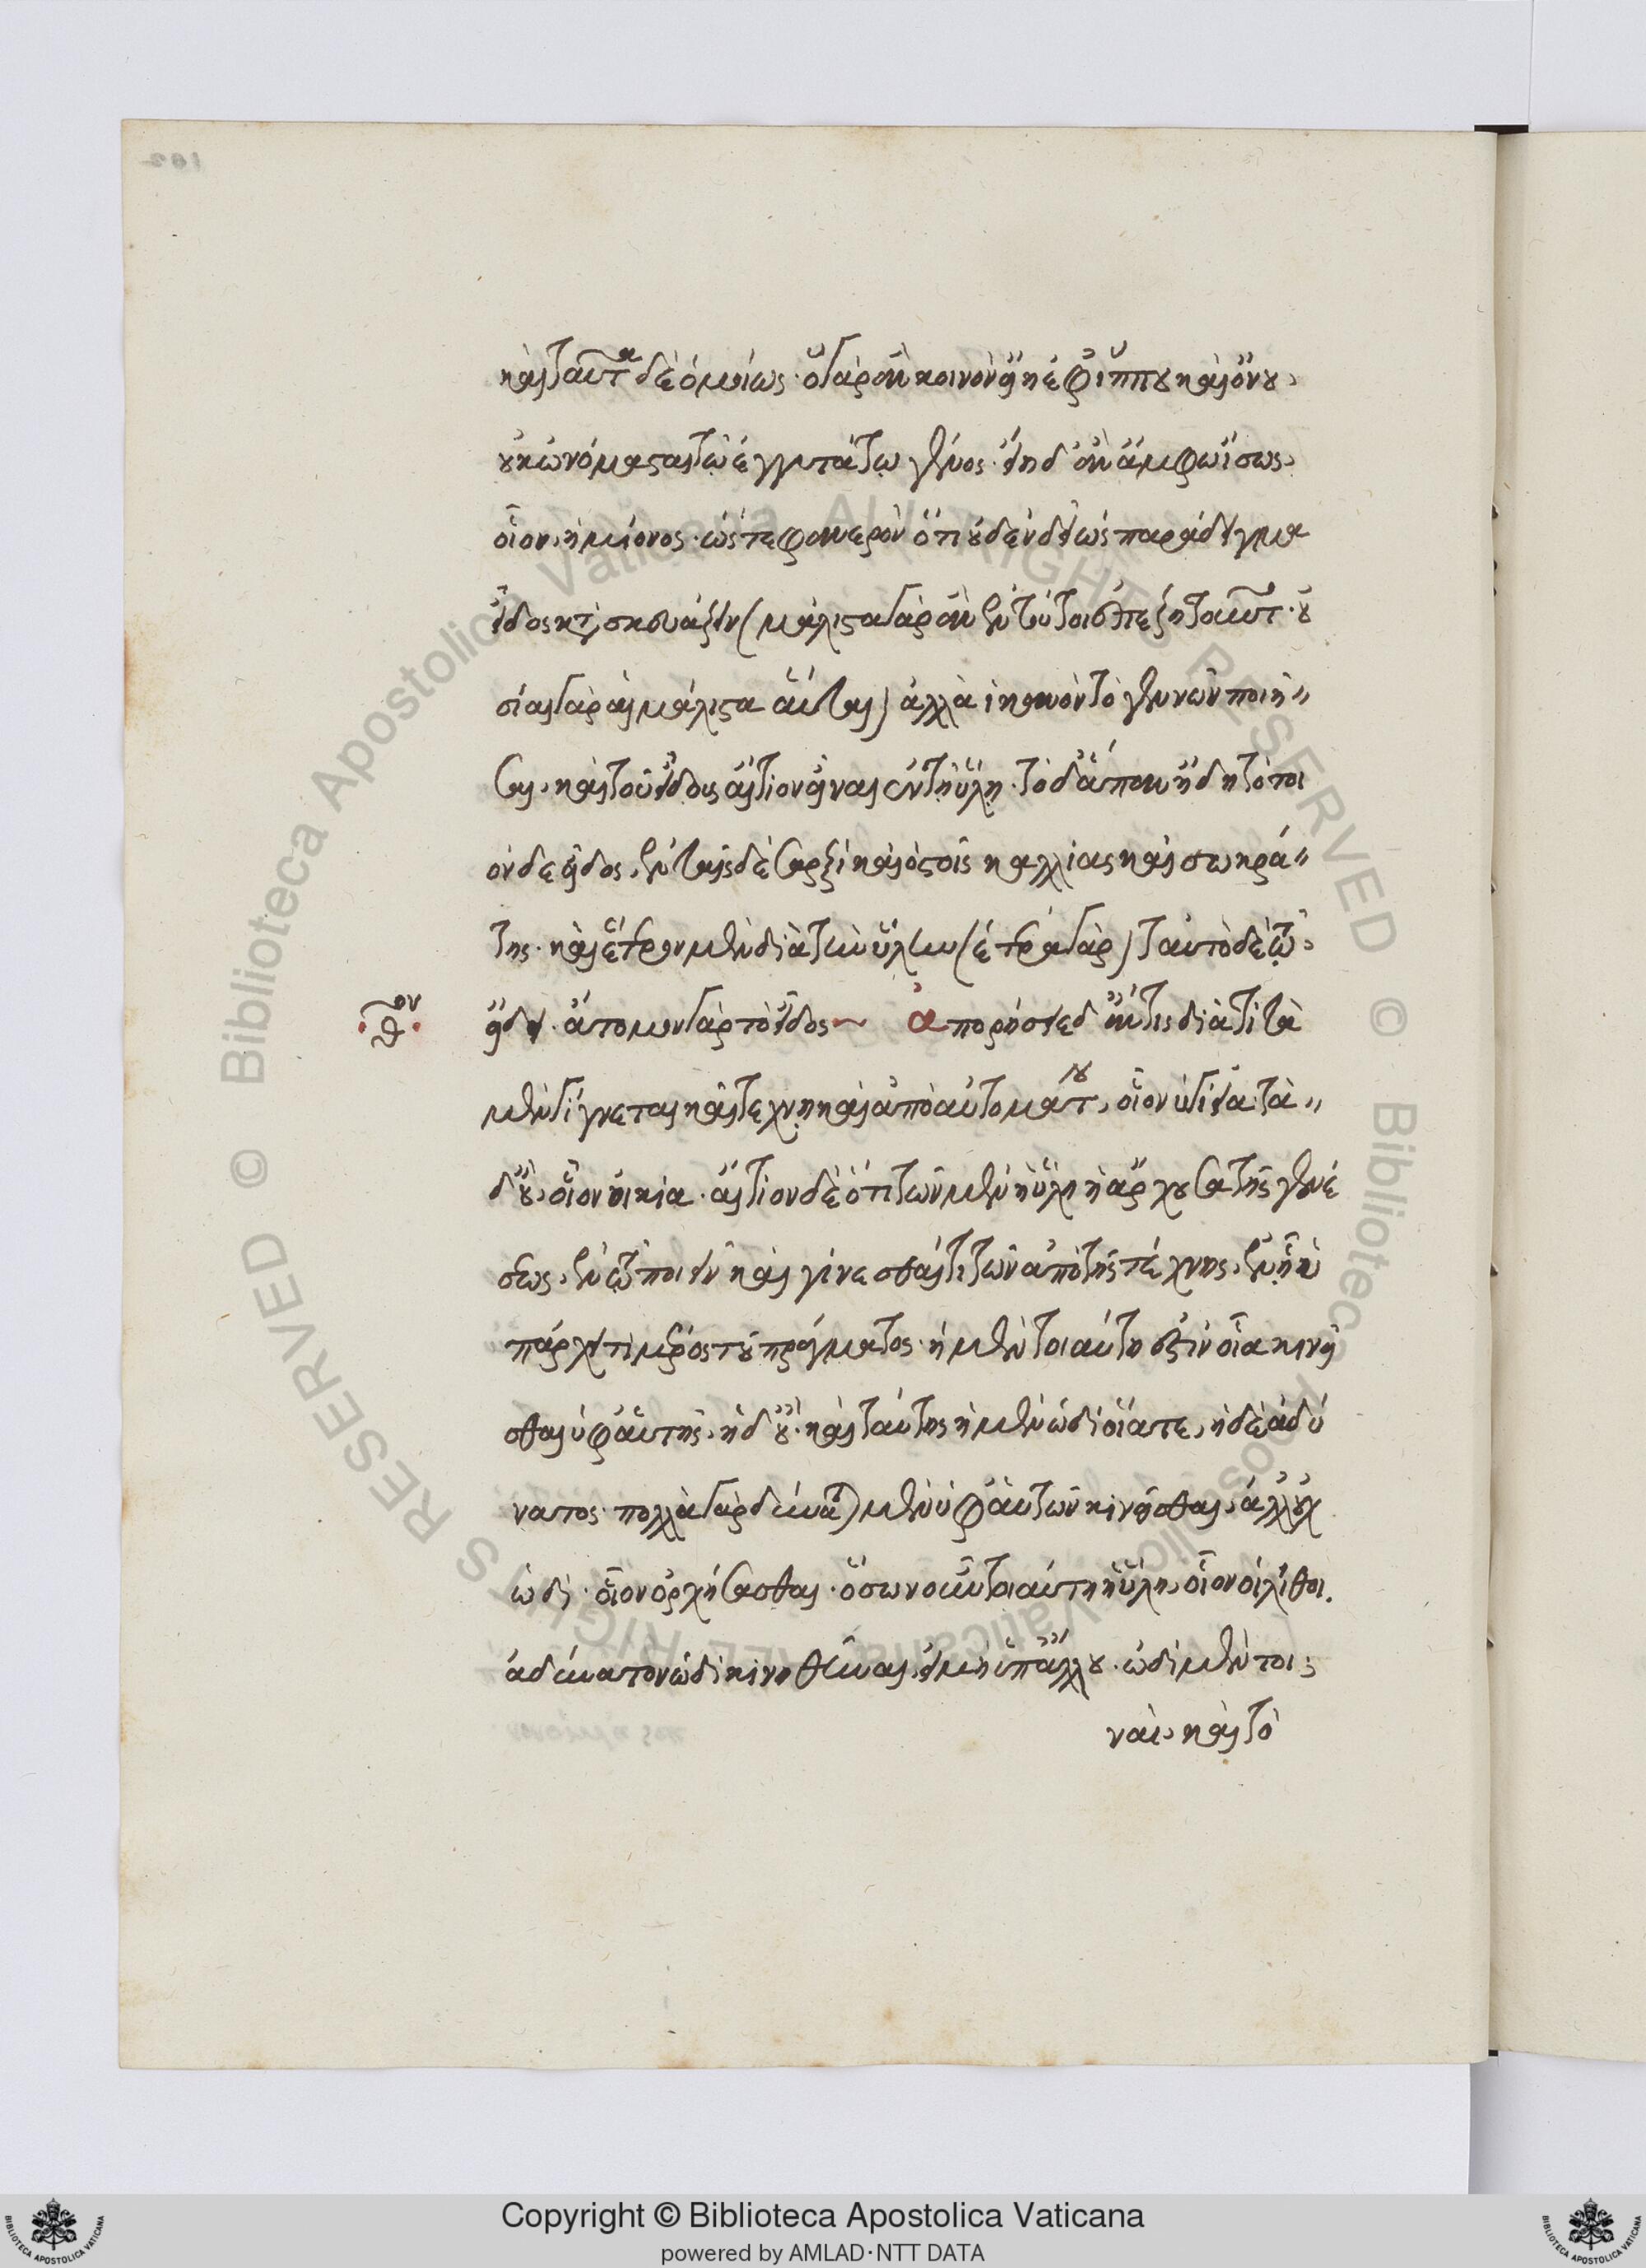 καὶ ταῦτα δὲ ὁμοίως· ὃ γὰρ ἂν κοινὸν εἴη ἐφ' ἵππου καὶ ὄνου,
οὐκ ὠνόμασται τῷ ἐγγυτάτω γένος· εἴη δ' ἂν ἄμφω ἴσως,
οἷον, ἡμίονος· ὥστε φανερὸν ὅτι οὐδὲν δεῖ ὡς παράδειγμα
εἶδος κατασκευάζειν (μάλιστα γὰρ ἂν ἐν τούτοις ἐπεζητοῦντ· οὐ
σίαι γὰρ αἱ μάλιστα αὗται) ἀλλὰ ἱκανὸν τὸ γεννῶν ποιῆ〃
σαι, καὶ τοῦ εἴδους αἴτιον εἶναι ἐν τῇ ὕλῃ· τὸ δ' ἅπαν ἤδη τὸ τοι
όνδε εἶδος, ἐν ταῖσδε σαρξὶ καὶ ὀστοῖς καλλίας καὶ σωκρά〃
της· καὶ ἕτερον μὲν διὰ τὴν ὕλην (ἑτέρα γὰρ) ταυτὸ δὲ τῷ,
εἴδει· ἄτομον γὰρ τὸ εἶδος ~ ἀπορήσειε δ' ἄν τις διὰ τί τὰ
θον
μὲν γίγνεται καὶ τέχνῃ καὶ ἀπὸ αὐτομάτου, οἷον ὑγίεια· τὰ〃
δ' οὔ, οἷον οἰκία· αἴτιον δὲ ὅτι τῶν μὲν ἡ ὕλη ἡ ἄρχουσα τῆς γενέ
σεως, ἐν τῷ ποιεῖν καὶ γίνεσθαί τι τῶν ἀπὸ τῆς τέχνης, ἐν ᾗ ὑ
πάρχει τι μέρος τοῦ πράγματος· ἡ μὲν τοιαύτη ἐστὶν οἵα κινεῖ
σθαι ὑφ' αὑτῆς, ἡ δ' οὔ· καὶ ταύτης ἡ μὲν ὡδὶ οἵα τε, ἡ δὲ ἀδύ
νατος· πολλὰ γὰρ δυνατὰ μὲν ὑφ' αὑτῶν κινεῖσθαι, ἀλλ' οὐχ
ὡδί· οἷον ὀρχήσασθαι· ὅσων οὖν τοιαύτη ἡ ὕλη, οἷον οἱ λίθοι.
ἀδύνατον ὡδὶ κινηθῆναι, εἰ μὴ ὑπ' ἄλλου· ὡδὶ μέντοι,
ναί, καὶ τὸ
Copyright © Biblioteca Apostolica Vaticana
powered by AMLAD·NTT DATA